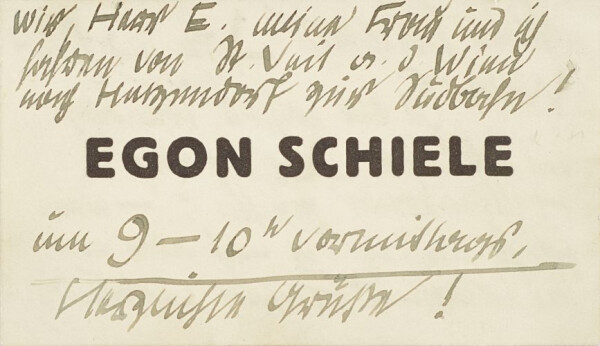 wir, Herr E. meine Frau und ich
fahren von St. Veit a. d Wien
nach Hatzendorf zur Südbahn!
EGON SCHIELE
um 9 – 10ʰ vormittags.
Herzlichste Grüße!